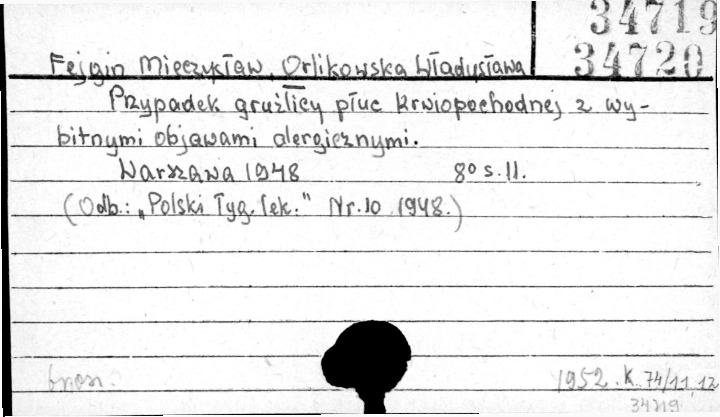 34719
34720
Fejgin Mieczysław, Orlikowska Władysława
Przypadek gruźlicy płuc krwiopochodnej z wy-
bitnymi objawami alergicznymi.
Warszawa 1948 8º s. 11.
(Odb.: "Polski Tyg. lek." Nr. 10 1948.)
1952. K. 74/11, 12
34719